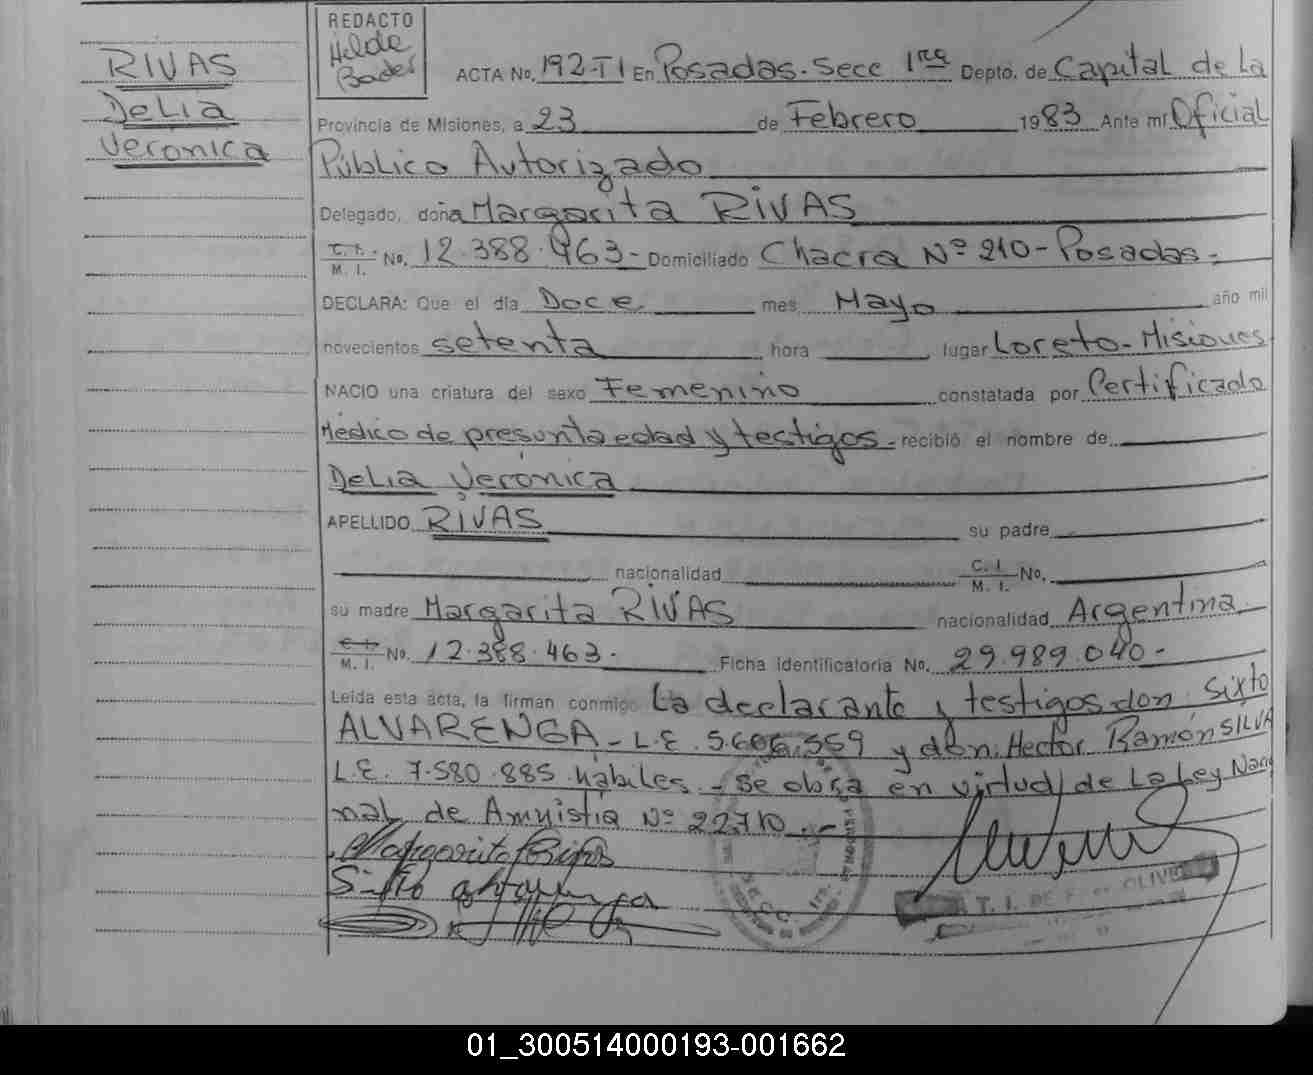 RIVAS
Delia
Verónica
REDACTO
Hilda
ACTA No. 192-TI En Posadas. Secc 1ra Depto. de Capital de La
Provincia de Misiones, a 23 de Febrero 1983 Ante mí Oficial
Público Autorizado
Delegado, doña Margarita RIVAS
C. I. M. I. No. 12.388.463- Domiciliado Chacra Nº 210-Posadas-
DECLARA: Que el día Doce mes Mayo año mil
novecientos setenta hora lugar Loreto-Misiones
NACIO una criatura del sexo Femenino constatada por Certificado
Médico de presunta edad y testigos- recibió el nombre de
Delia Verónica
APELLIDO RIVAS su padre
nacionalidad C. I. M. I. No.
su madre Margarita RIVAS nacionalidad Argentina
C. I. M. I. No. 12.388.463- Ficha identificatoria No. 29.989.040-
Leída esta acta, la firman conmigo La declarante y testigos don Sixto
ALVARENGA- L.E. 5.606.559 y don Hector Ramón SILVA
L.E. 7.580.885 hábiles.- Se obra en virtud de La Ley Nacio
nal de Amnistía Nº 22.710.-
01_300514000193-001662